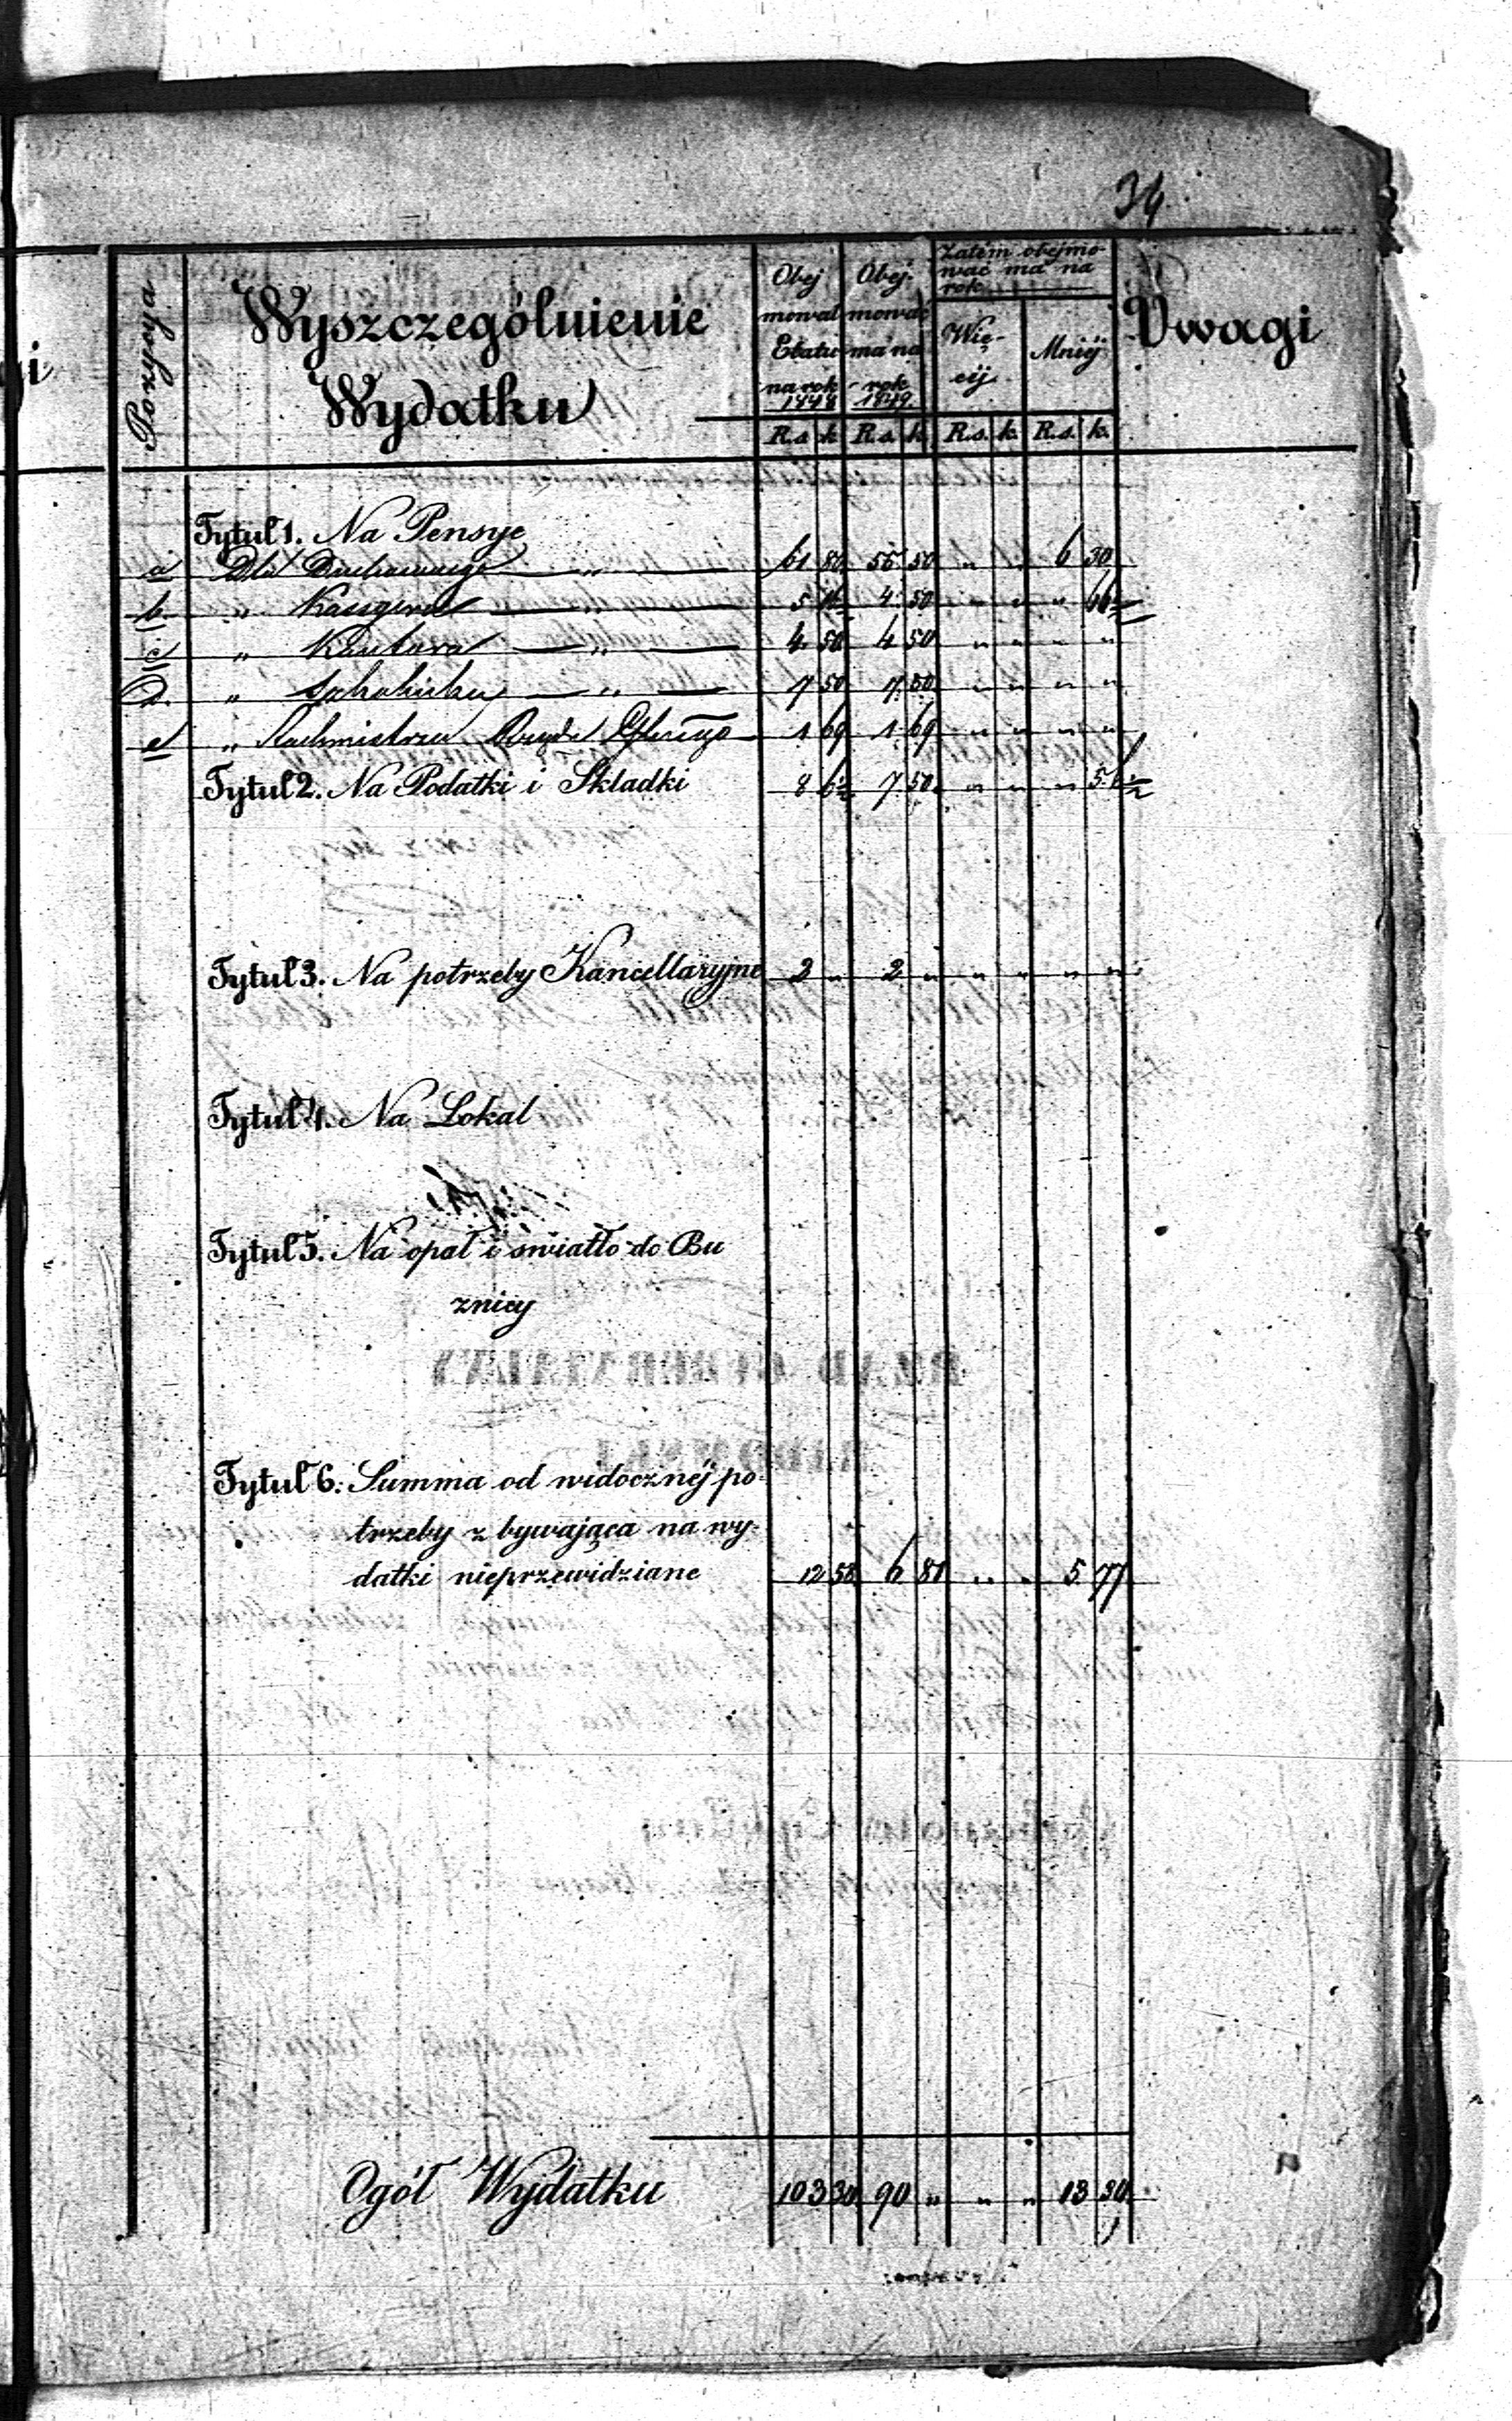 34
Pozycya
Wyszczególnienie
Wydatku
Obej
mował
Etatu
na rok
1848
Obej-
mować
ma na
rok
1849
Zatem obejmo-
wać ma na
rok
Wię-
cej
Mniéj
Uwagi
R.s. k. R.s. k. R.s. k. R.s. k.
Tytuł 1. Na Pensye
a Dla Duchownego — „ — 61 80 55 50 „ „ 6 30
b. „ Kassyera — „ — 5 4 50 „ „ „
c. „ Kantora — „ — 4 50 4 50 „ „ „ „
d. „ Szkolnika — „ — 7 50 7 50 „ „ „ „
e „ Rachmistrza 1 69 1 69 „ „ „ „
Tytuł 2. Na Podatki i Składki 8 6½ 7 50 „ „ „ 56½
Tytuł 3. Na potrzeby Kancellaryjne 2 „ 2 „ „ „ „ „
Tytuł 4. Na Lokal
Tytuł 5. Na opał i światło do Bu
znicy
Tytuł 6. Summa od widocznéj po-
trzeby zbywająca na wy-
datki nieprzewidziane 12 58 6 81 „ „ 5 77
Ogół Wydatku 103 30 90 „ „ „ 13 30